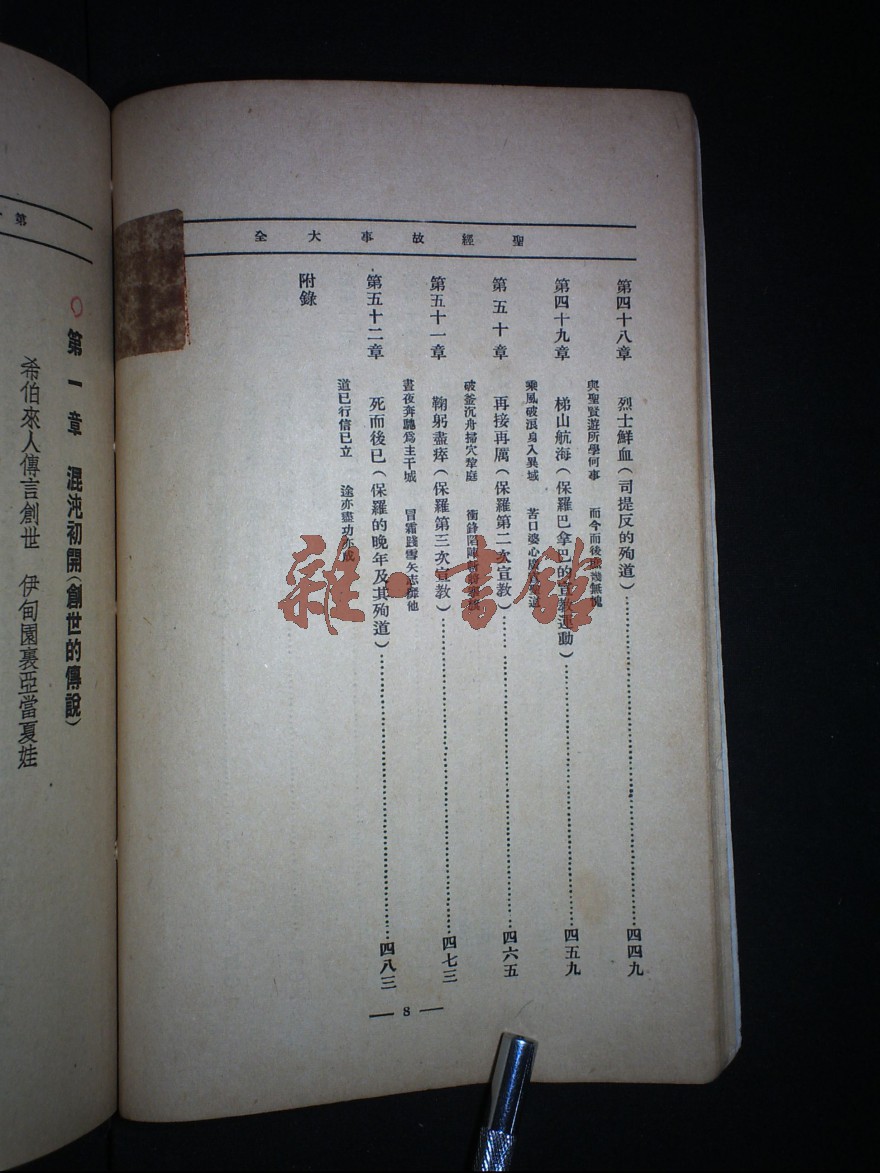 聖經故事大全
第四十八章 烈士鮮血(司提反的殉道)……四四九
與聖賢遊所學何事 而今而後 無愧
第四十九章 梯山航海(保羅巴拿巴的宣教運動)……四五九
乘風破浪身入異域 苦口婆心
第五十章 再接再厲(保羅第二次宣教)……四六五
破釜沉舟掃穴犂庭 衝鋒陷陣
第五十一章 鞠躬盡瘁(保羅第三次宣教)……四七三
晝夜奔馳爲主干城 冒霜踐雪矢志靡他
第五十二章 死而後已(保羅的晚年及其殉道)……四八三
道已行信已立 途亦盡功亦成
附錄
— 8 —
第
第一章 混沌初開(創世的傳說)
希伯來人傳言創世 伊甸園裏亞當夏娃
雜·書館